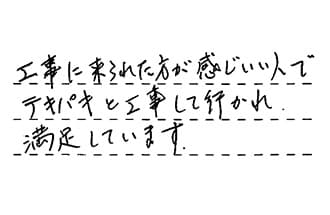 工事に来られた方が感じいい人で
テキパキと工事して行かれ.
満足しています.